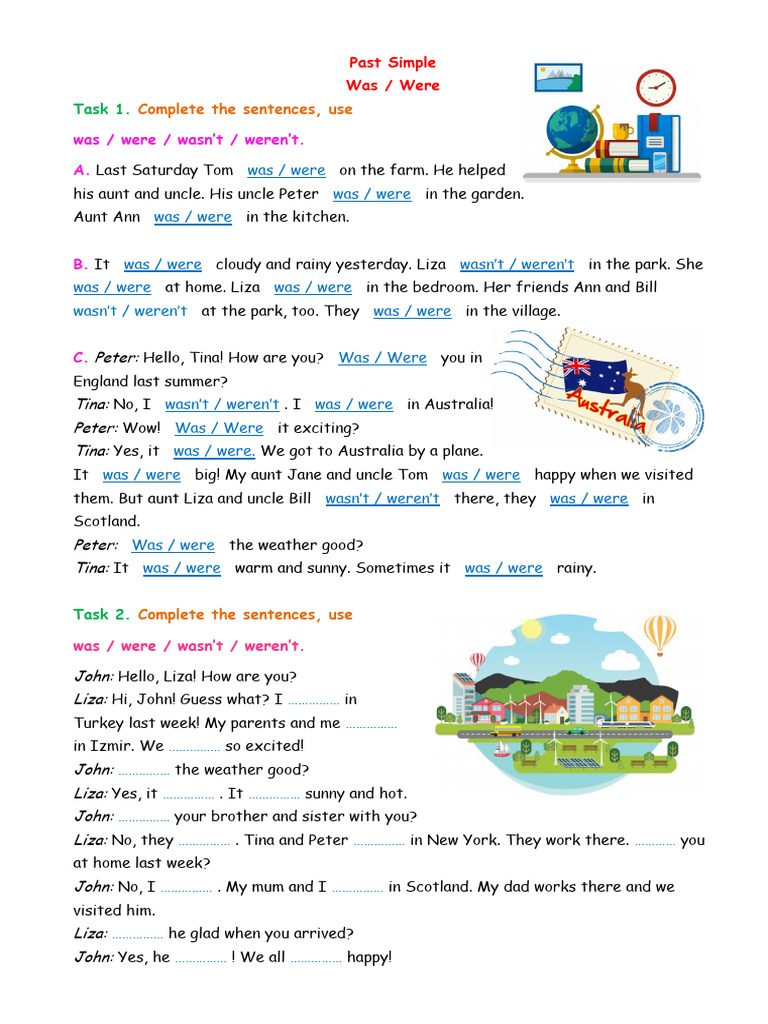 Past Simple
Was / Were
Task 1. Complete the sentences, use
was / were / wasn't / weren't.
A. Last Saturday Tom was / were on the farm. He helped
his aunt and uncle. His uncle Peter was / were in the garden.
Aunt Ann was / were in the kitchen.
B. It was / were cloudy and rainy yesterday. Liza wasn't / weren't in the park. She
was / were at home. Liza was / were in the bedroom. Her friends Ann and Bill
wasn't / weren't at the park, too. They was / were in the village.
C. Peter: Hello, Tina! How are you? Was / Were you in
England last summer?
Tina: No, I wasn't / weren't . I was / were in Australia!
Peter: Wow! Was / Were it exciting?
Tina: Yes, it was / were. We got to Australia by a plane.
It was / were big! My aunt Jane and uncle Tom was / were happy when we visited
them. But aunt Liza and uncle Bill wasn't / weren't there, they was / were in
Scotland.
Peter: Was / were the weather good?
Tina: It was / were warm and sunny. Sometimes it was / were rainy.
Australia
Task 2. Complete the sentences, use
was / were / wasn't / weren't.
John: Hello, Liza! How are you?
Liza: Hi, John! Guess what? I …………… in
Turkey last week! My parents and me ……………
in Izmir. We …………… so excited!
John: …………… the weather good?
Liza: Yes, it …………… . It …………… sunny and hot.
John: …………… your brother and sister with you?
Liza: No, they …………… . Tina and Peter …………… in New York. They work there. ………… you
at home last week?
John: No, I …………… . My mum and I …………… in Scotland. My dad works there and we
visited him.
Liza: …………… he glad when you arrived?
John: Yes, he …………… ! We all …………… happy!